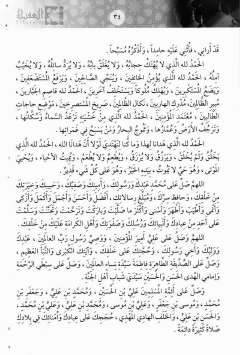 ٣٤
قَدْ أَرانِي، فَأُثْنِي عَلَيْهِ حامِداً، وَأَذْكُرُهُ مُسَبِّحاً.
الْحَمْدُ لله الَّذِي لا يُهْتَكُ حِجابُهُ، وَلا يُغْلَقُ بابُهُ، وَلا يُرَدُّ سائِلُهُ، وَلا يُخَيَّبُ
آمِلُهُ. الْحَمْدُ لله الَّذِي يُؤْمِنُ الْخائِفِينَ، وَيُنَجِّي الصَّالِحِينَ، وَيَرْفَعُ الْمُسْتَضْعَفِينَ،
وَيَضَعُ الْمُسْتَكْبِرِينَ، وَيُهْلِكُ مُلُوكاً وَيَسْتَخْلِفُ آخَرِينَ. الْحَمْدُ لله قاصِمِ الْجَبَّارِينَ،
مُبِيرِ الظَّالِمِينَ، مُدْرِكِ الْهارِبِينَ، نَكالِ الظَّالِمِينَ، صَرِيخِ الْمُسْتَصْرِخِينَ، مَوْضِعِ حاجاتِ
الطَّالِبِينَ، مُعْتَمَدِ الْمُؤْمِنِينَ. الْحَمْدُ لله الَّذِي مِنْ خَشْيَتِهِ تَرْعَدُ السَّماءُ وَسُكَّانُها،
وَتَرْجُفُ الْأَرْضُ وَعُمَّارُها، وَتَمُوجُ الْبِحارُ وَمَنْ يَسْبَحُ فِي غَمَراتِها.
الْحَمْدُ لله الَّذِي هَدانا لِهذا وَما كُنَّا لِنَهْتَدِيَ لَوْلا أَنْ هَدانا الله. الْحَمْدُ لله الَّذِي
يَخْلُقُ وَلَمْ يُخْلَقْ، وَيَرْزُقُ وَلا يُرْزَقُ، وَيُطْعِمُ وَلا يُطْعَمُ، وَيُمِيتُ الْأَحْياءَ، وَيُحْيِي
الْمَوْتى، وَهُوَ حَيٌّ لا يَمُوتُ، بِيَدِهِ الْخَيْرُ، وَهُوَ عَلى كُلِّ شَيْءٍ قَدِيرٌ.
اللهمّ صَلِّ عَلى مُحَمَّدٍ عَبْدِكَ وَرَسُولِكَ، وَأَمِينِكَ وَصَفِيِّكَ، وَحَبِيبِكَ وَخِيَرَتِكَ
مِنْ خَلْقِكَ، وَحافِظِ سِرِّكَ، وَمُبَلِّغِ رِسالاتِكَ، أَفْضَلَ وَأَحْسَنَ وَأَجْمَلَ وَأَكْمَلَ وَأَزْكى
وَأَنْمى وَأَطْيَبَ وَأَطْهَرَ وَأَسْنى وَأَكْثَرَ ما صَلَّيْتَ وَبارَكْتَ وَتَرَحَّمْتَ وَتَحَنَّنْتَ وَسَلَّمْتَ
عَلى أَحَدٍ مِنْ عِبادِكَ وَأَنْبِيائِكَ وَرُسُلِكَ وَصَفْوَتِكَ وَأَهْلِ الْكَرامَةِ عَلَيْكَ مِنْ خَلْقِكَ.
اللهمّ صَلِّ عَلى عَلِيٍّ أَمِيرِ الْمُؤْمِنِينَ، وَوَصِيِّ رَسُولِ رَبِّ الْعالَمِينَ، عَبْدِكَ
وَوَلِيِّكَ، وَأَخِي رَسُولِكَ، وَحُجَّتِكَ عَلى خَلْقِكَ، وَآيَتِكَ الْكُبْرى، وَالنَّبَإِ الْعَظِيمِ،
وَصَلِّ عَلَى الصِّدِّيقَةِ الطَّاهِرَةِ فاطِمَةَ سَيِّدَةِ نِساءِ الْعالَمِينَ، وَصَلِّ عَلى سِبْطَيِ الرَّحْمَةِ
وَإِمامَيِ الْهُدى الْحَسَنِ وَالْحُسَيْنِ سَيِّدَيْ شَبابِ أَهْلِ الْجَنَّةِ.
وَصَلِّ عَلى أَئِمَّةِ الْمُسْلِمِينَ عَلِيِّ بْنِ الْحُسَيْنِ، وَمُحَمَّدِ بْنِ عَلِيٍّ، وَجَعْفَرِ بْنِ
مُحَمَّدٍ، وَمُوسَى بْنِ جَعْفَرٍ، وَعَلِيِّ بْنِ مُوسى، وَمُحَمَّدِ بْنِ عَلِيٍّ، وَعَلِيِّ بْنِ مُحَمَّدٍ،
وَالْحَسَنِ بْنِ عَلِيٍّ، وَالْخَلَفِ الْهادِي الْمَهْدِيِّ، حُجَجِكَ عَلى عِبادِكَ وَأُمَنائِكَ فِي بِلادِكَ
صَلاةً كَثِيرَةً دائِمَةً.